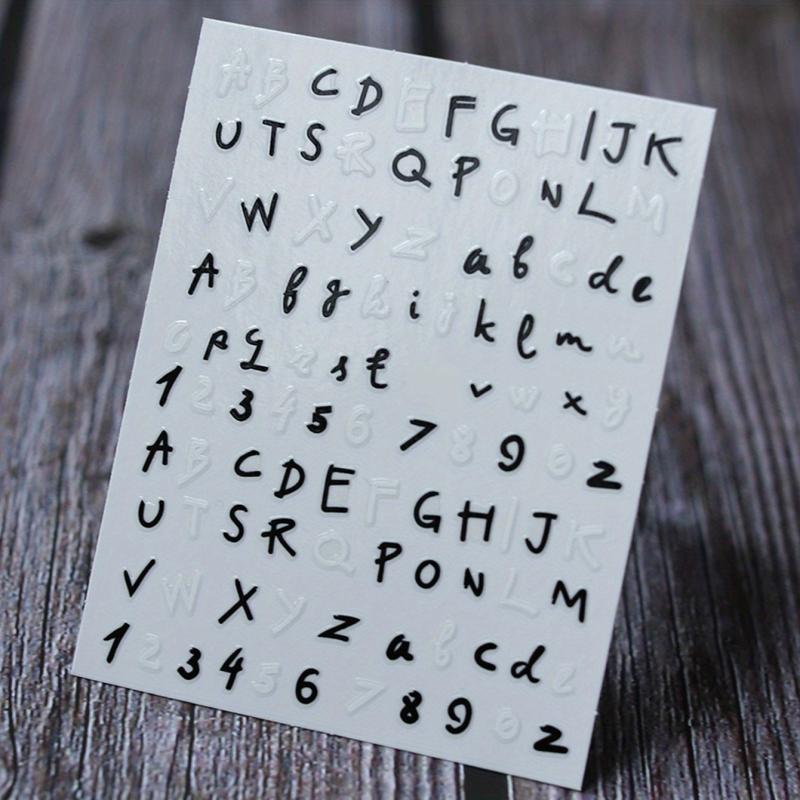 A B C D E F G H I J K
U T S R Q P O N L M
V W X Y Z a b c d e
A B f g h i j k l m n
o p q r s t v w x y
1 2 3 4 5 6 7 8 9 0 z
A B C D E F G H I J K
U T S R Q P O N L M
V W X Y Z a b c d e
1 2 3 4 5 6 7 8 9 0 z